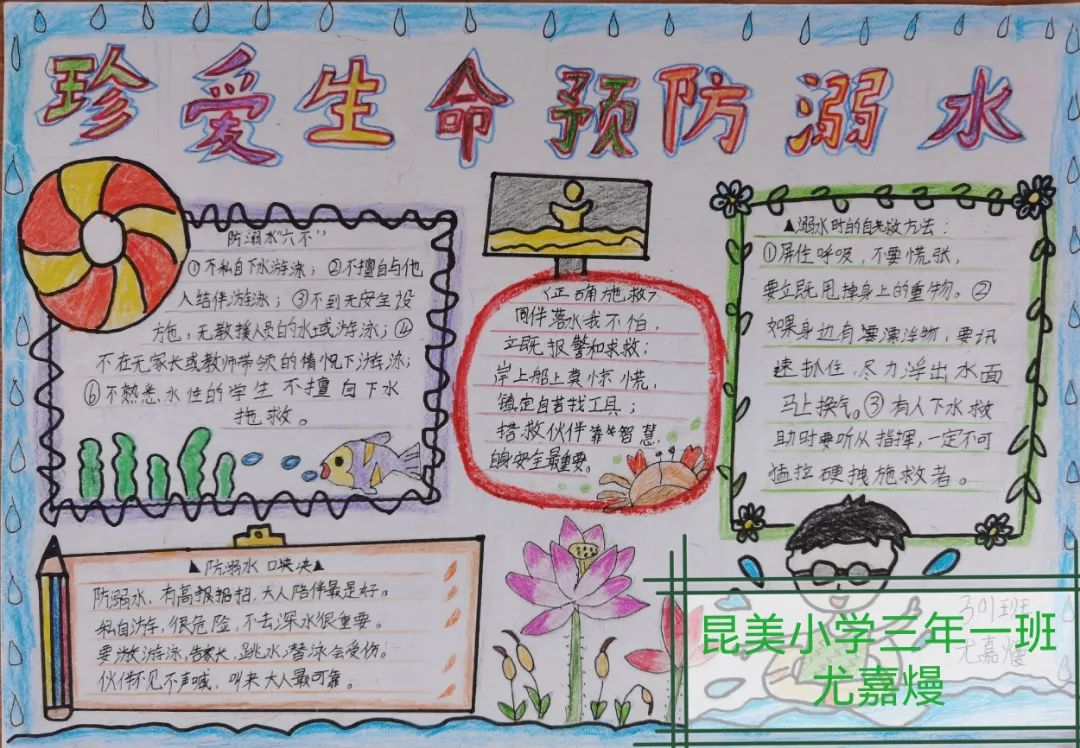 珍爱生命预防溺水
防溺水"六不"
①不私自下水游泳；②不擅自与他
人结伴游泳；③不到无安全设
施，无救援人员的水域游泳；④
不在无家长或教师带领的情况下游泳；
⑥不熟悉水性的学生不擅自下水
拖救。
〈正确施救〉
同伴落水我不怕，
立既报警和求救；
岸上船上莫惊慌，
镇定自若找工具；
搭救伙伴靠智慧，
自身安全最重要。
▲溺水时的自救方法：
①屏住呼吸，不要慌张，
要立既甩掉身上的重物。②
如果身边有漂浮物，要讯
速抓住，尽力浮出水面
马上换气。③有人下水救
助时要听从指挥，一定不可
猛拉硬拽施救者。
▲防溺水口诀▲
防溺水，有高招，大人陪伴最是好。
私自游，很危险，不去深水很重要。
要游泳，告家长，跳水潜泳会受伤。
伙伴不见不声喊，叫来大人最可靠。
301班
尤嘉熳
昆美小学三年一班
尤嘉熳